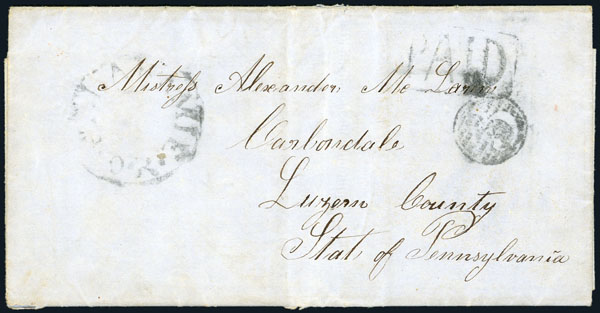 PAID
Mistress Alexander Mc Laren
Carbondale
Luzern County
Stat of Pennsylvania